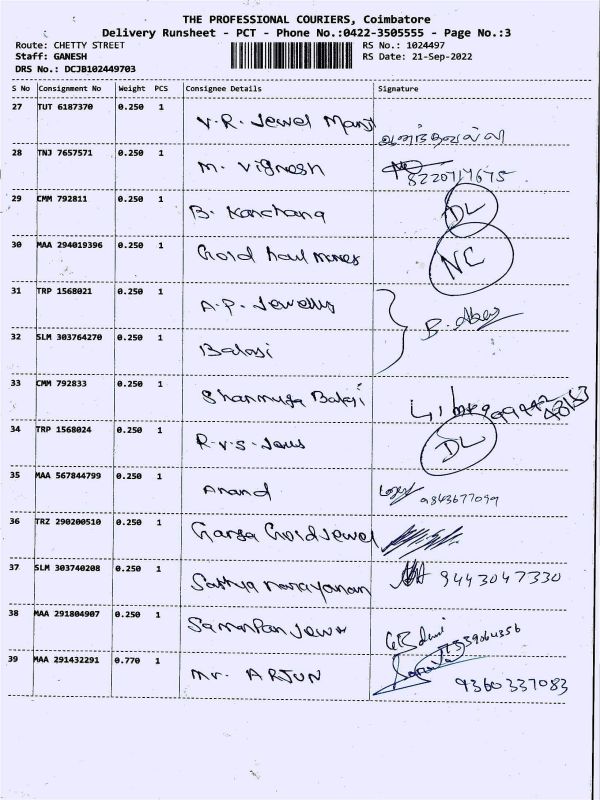 THE PROFESSIONAL COURIERS, Coimbatore
Delivery Runsheet - PCT - Phone No.:0422-3505555 - Page No.:3
Route: CHETTY STREET RS No.: 1024497
Staff: GANESH RS Date: 21-Sep-2022
DRS No.: DCJB102449703
S No Consignment No Weight PCS Consignee Details Signature
27 TUT 6187370 0.250 1 V.R. Jewel
28 TNJ 7657571 0.250 1 M. Vignesh 8220717675
29 CMM 792811 0.250 1 B. Kanchana DL
30 MAA 294019396 0.250 1 Gold NC
31 TRP 1568021 0.250 1 A.P. Jewellers
32 SLM 303764270 0.250 1 Balaji
33 CMM 792833 0.250 1 Shanmuga Balaji
34 TRP 1568024 0.250 1 R.V.S. DL
35 MAA 567844799 0.250 1 Anand 9843677099
36 TRZ 290200510 0.250 1 Garga Gold Jewel
37 SLM 303740208 0.250 1 Sathya narayanan 9443047330
38 MAA 291804907 0.250 1
39 MAA 291432291 0.770 1 Mr. ARJUN 9360337083